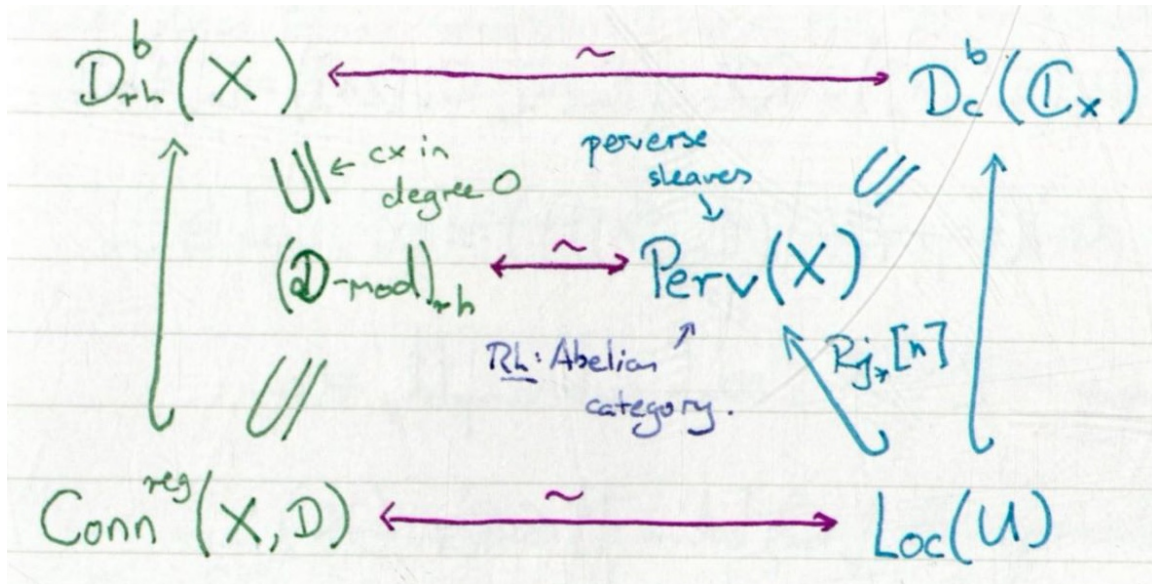 D^b_{rh}(X) ⟷^~ D^b_c(ℂ_X)
∪| ← cx in degree 0
perverse sheaves ↓
∪//
(𝒟-mod)_{rh} ⟷^~ Perv(X)
Rk: Abelian category. ↗
Rj_*[n]
∪//
Conn^{reg}(X, D) ⟷^~ Loc(U)